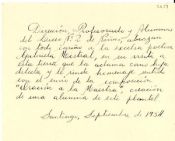 Dirección, Profesorado y Alumnas
del Liceo Nº 2 de Niñas, abrazan
con todo cariño a la excelsa poetisa
Gabriela Mistral, en su visita a
esta tierra que la aclama como hija
dilecta y le rinde homenaje sentido
con el envío de la composición
"Oración a la Maestra", creación
de una alumna de este plantel
Santiago, Septiembre de 1954